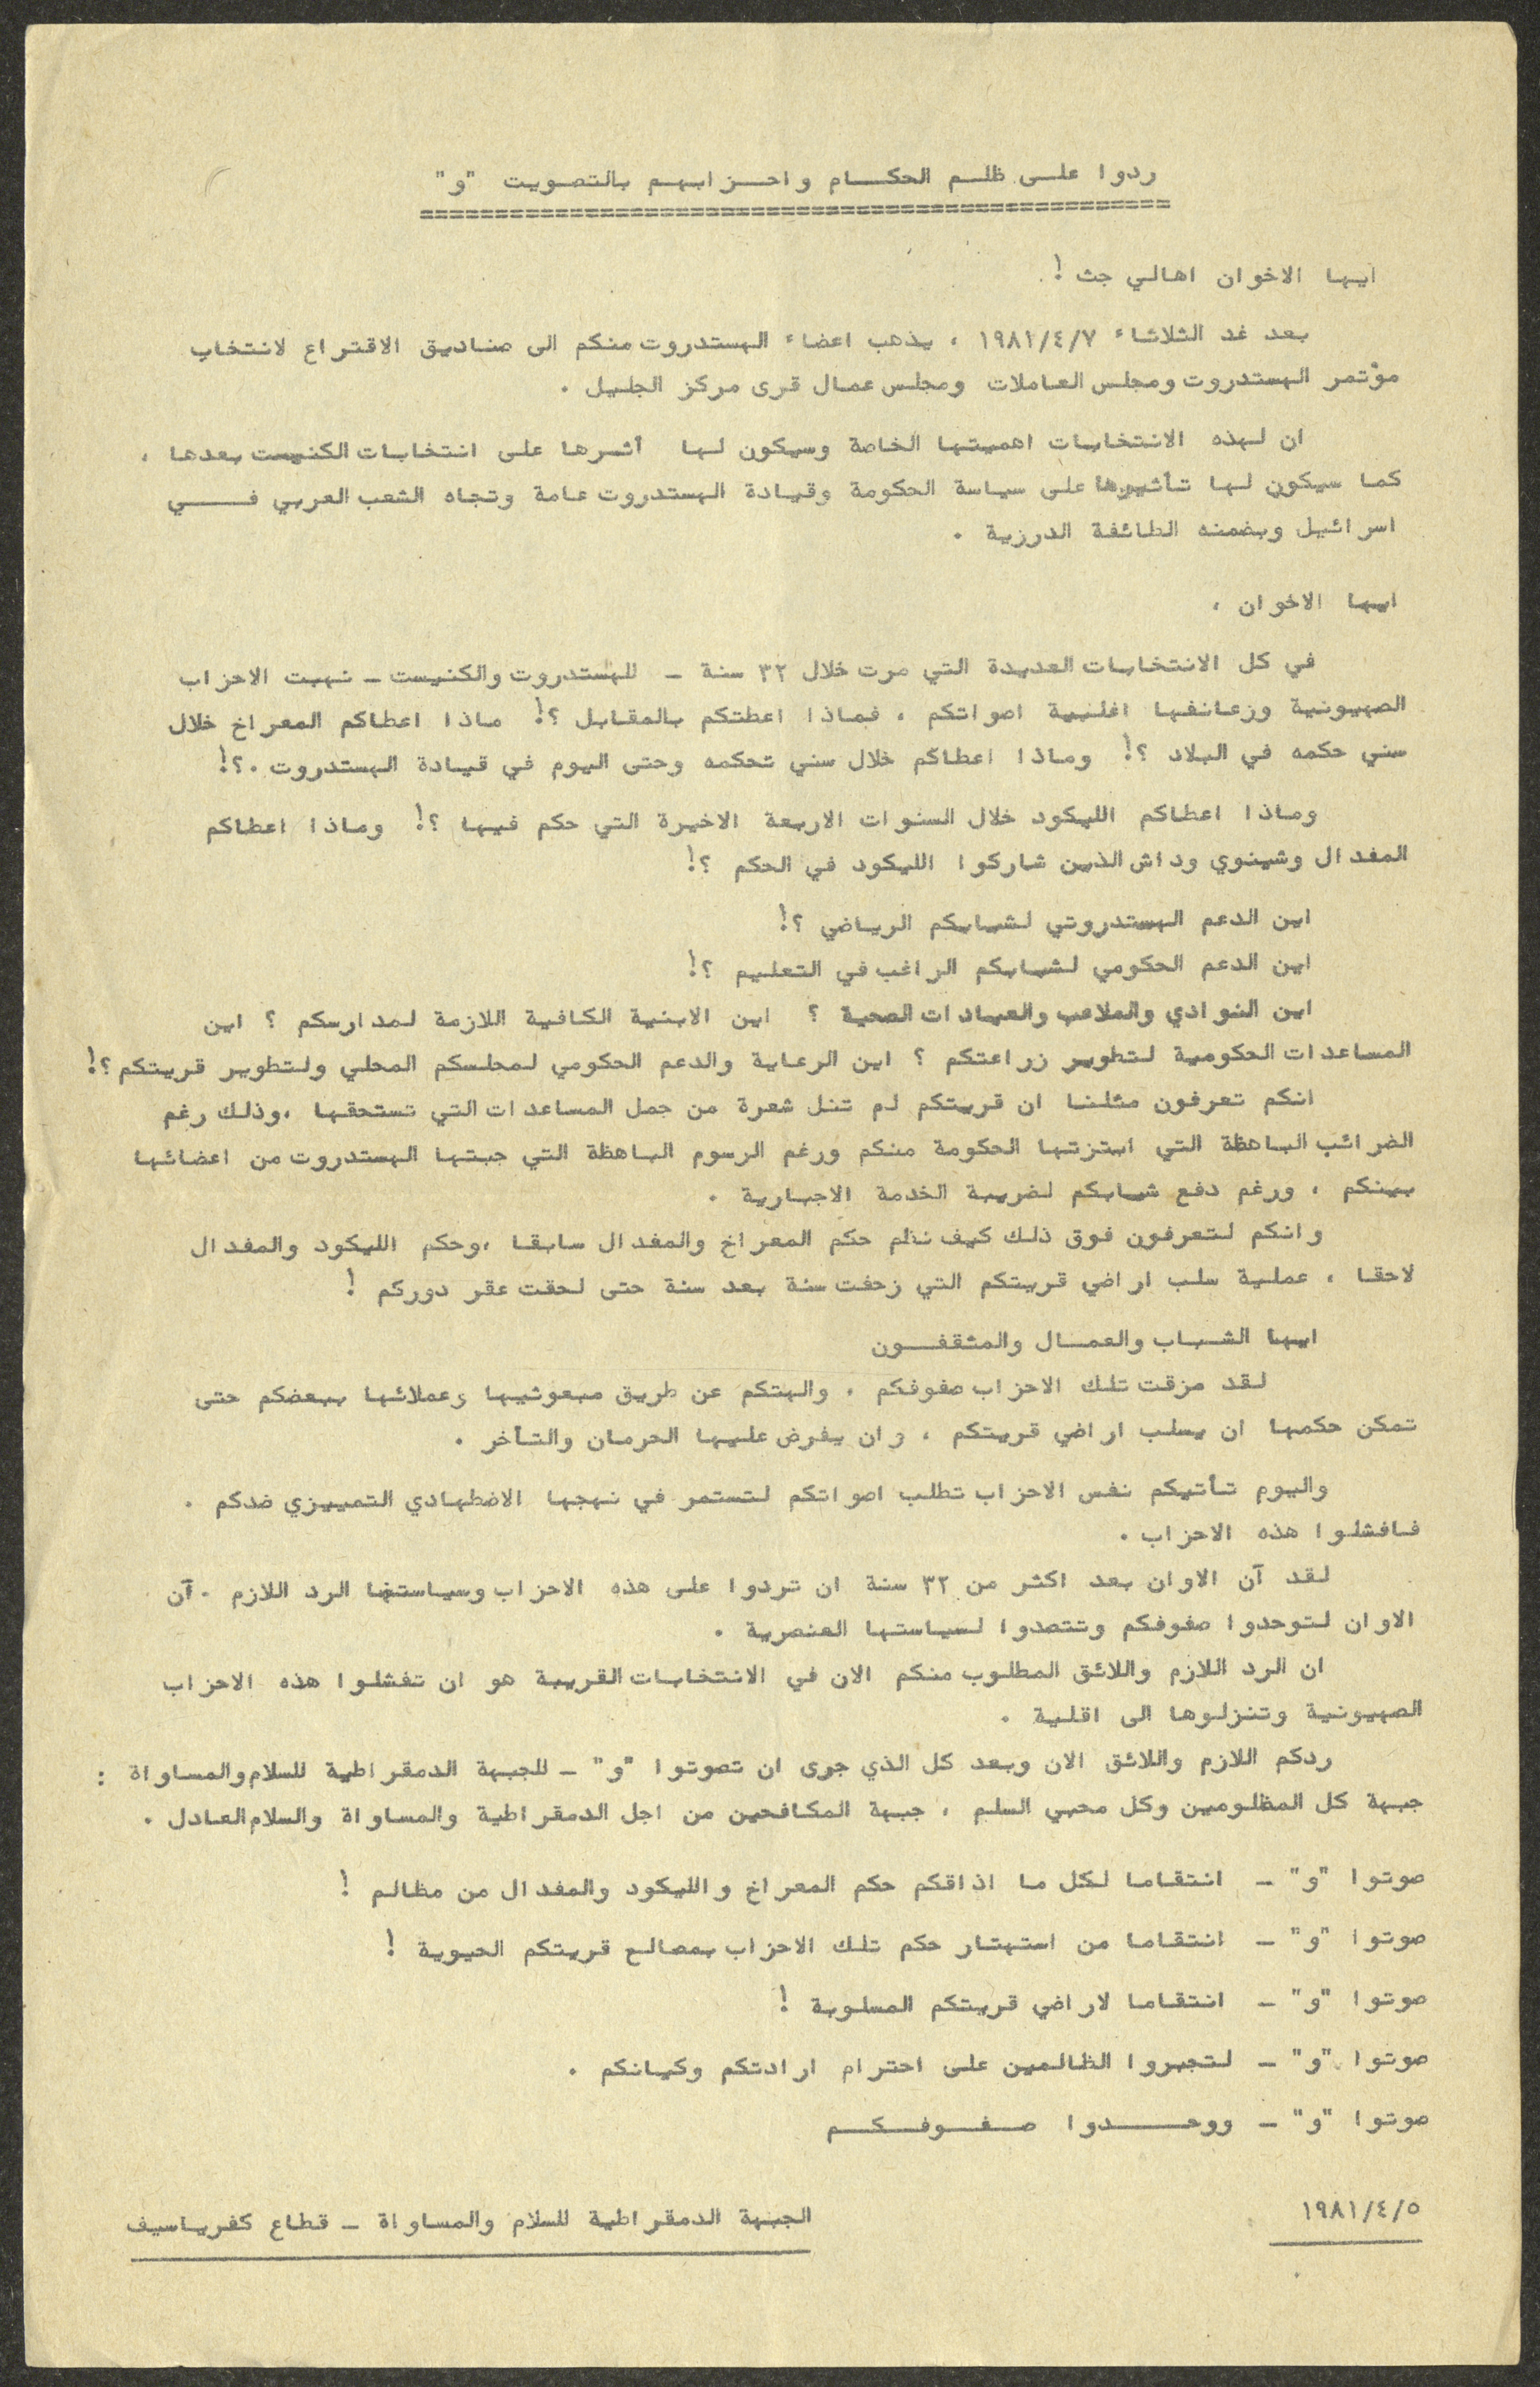 ردوا على ظلم الحكام واحزابهم بالتصويت "و"
ايها الاخوان اهالي جث !
بعد غد الثلاثاء ١٩٨١/٤/٧ ، يذهب اعضاء الهستدروت منكم الى صناديق الاقتراع لانتخاب
مؤتمر الهستدروت ومجلس العاملات ومجلس عمال قرى مركز الجليل .
ان لهذه الانتخابات اهميتها الخاصة وسيكون لها أثرها على انتخابات الكنيست بعدها ،
كما سيكون لها تأثيرها على سياسة الحكومة وقيادة الهستدروت عامة وتجاه الشعب العربي في
اسرائيل وبضمنه الطائفة الدرزية .
ايها الاخوان ،
في كل الانتخابات العديدة التي مرت خلال ٣٢ سنة - للهستدروت والكنيست - نهبت الاحزاب
الصهيونية وزعانفها اغلبية اصواتكم ، فماذا اعطتكم بالمقابل ؟! ماذا اعطاكم المعراخ خلال
سني حكمه في البلاد ؟! وماذا اعطاكم خلال سني تحكمه وحتى اليوم في قيادة الهستدروت .؟!
وماذا اعطاكم الليكود خلال السنوات الاربعة الاخيرة التي حكم فيها ؟! وماذا اعطاكم
المفدال وشينوي وداش الذين شاركوا الليكود في الحكم ؟!
اين الدعم الهستدروتي لشبابكم الرياضي ؟!
اين الدعم الحكومي لشبابكم الراغب في التعليم ؟!
اين النوادي والملاعب والعيادات الصحية ؟ اين الابنية الكافية اللازمة لمدارسكم ؟ اين
المساعدات الحكومية لتطوير زراعتكم ؟ اين الرعاية والدعم الحكومي لمجلسكم المحلي ولتطوير قريتكم ؟!
انكم تعرفون مثلنا ان قريتكم لم تنل شعرة من جمل المساعدات التي تستحقها ،وذلك رغم
الضرائب الباهظة التي ابتزتها الحكومة منكم ورغم الرسوم الباهظة التي جبتها الهستدروت من اعضائها
بينكم ، ورغم دفع شبابكم لضريبة الخدمة الاجبارية .
وانكم لتعرفون فوق ذلك كيف نظم حكم المعراخ والمفدال سابقا ،وحكم الليكود والمفدال
لاحقا ، عملية سلب اراضي قريتكم التي زحفت سنة بعد سنة حتى لحقت عقر دوركم !
ايها الشباب والعمال والمثقفون
لقد مزقت تلك الاحزاب صفوفكم ، والهتكم عن طريق مبعوثيها وعملائها ببعضكم حتى
تمكن حكمها ان يسلب اراضي قريتكم ، وان يفرض عليها الحرمان والتأخر .
واليوم تأتيكم نفس الاحزاب تطلب اصواتكم لتستمر في نهجها الاضطهادي التمييزي ضدكم .
فافشلوا هذه الاحزاب .
لقد آن الاوان بعد اكثر من ٣٢ سنة ان تردوا على هذه الاحزاب وسياستها الرد اللازم . آن
الاوان لتوحدوا صفوفكم وتتصدوا لسياستها العنصرية .
ان الرد اللازم واللائق المطلوب منكم الان في الانتخابات القريبة هو ان تفشلوا هذه الاحزاب
الصهيونية وتنزلوها الى اقلية .
ردكم اللازم واللائق الان وبعد كل الذي جرى ان تصوتوا "و" - للجبهة الدمقراطية للسلام والمساواة :
جبهة كل المظلومين وكل محبي السلم ، جبهة المكافحين من اجل الدمقراطية والمساواة والسلام العادل .
صوتوا "و" - انتقاما لكل ما اذاقكم حكم المعراخ والليكود والمفدال من مظالم !
صوتوا "و" - انتقاما من استهتار حكم تلك الاحزاب بمصالح قريتكم الحيوية !
صوتوا "و" - انتقاما لاراضي قريتكم المسلوبة !
صوتوا "و" - لتجبروا الظالمين على احترام ارادتكم وكيانكم .
صوتوا "و" - ووحدوا صفوفكم
١٩٨١/٤/٥
الجبهة الدمقراطية للسلام والمساواة - قطاع كفرياسيف